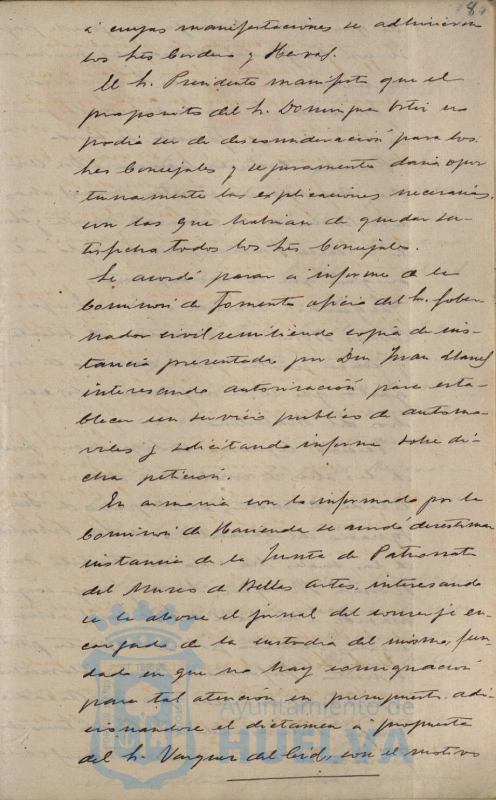 8
á cuyas manifestaciones se adhirieron
los Sres Cordero y Heras.
El Sr. Presidente manifestó que el
proposito del Sr. Dominguez Ortiz no
podia ser de desconsideración para los
Sres Concejales y seguramente daria opor
tunamente las explicaciones necesarias,
con las que habrian de quedar sa-
tisfechos todos los Sres Concejales.
Se acordó pasar á informe de la
Comision de Fomento oficio del Sr. Gober
nador civil remitiendo copia de ins-
tancia presentada por Don Juan
interesando autorización para esta-
blecer un servicio publico de automo-
viles y solicitando informe sobre di-
cha petición.
En armonia con lo informado por la
Comision de Hacienda se acordó desestimar
instancia de la Junta de Patronato
del Museo de Bellas Artes, interesando
se le abone el jornal del conserje en-
cargado de la custodia del mismo, fun-
dada en que no hay consignación
para tal atencion en presupuesto, adi-
cionandose el dictamen á propuesta
del Sr. Vazquez del Cid, con el motivo
Ayuntamiento de
HUELVA